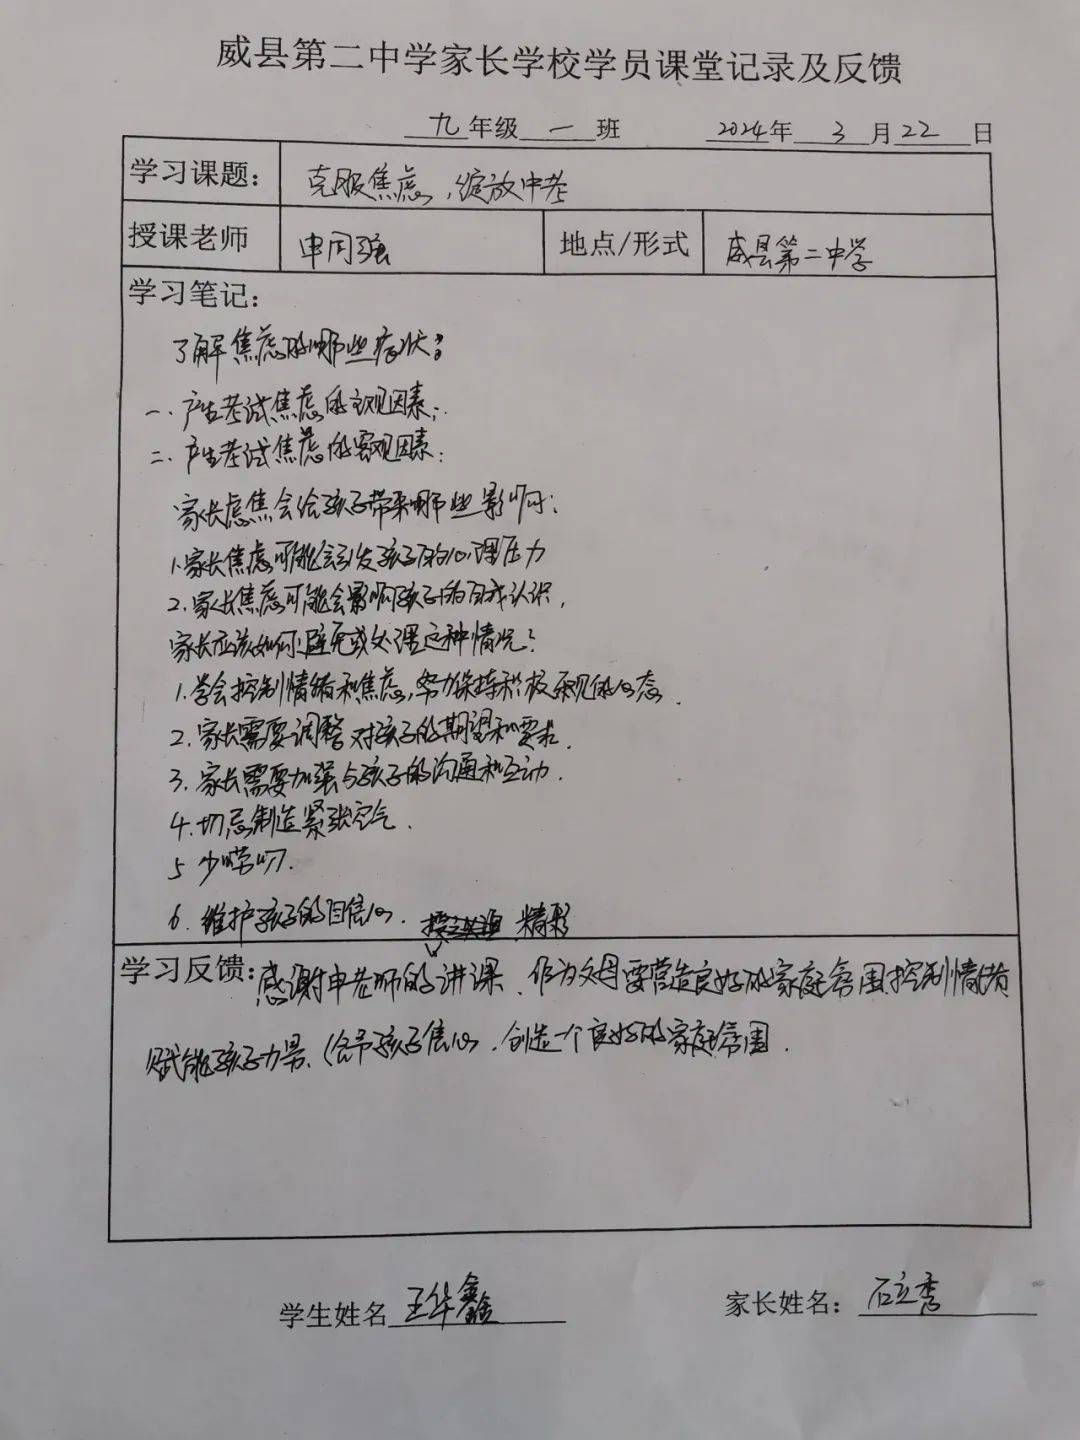 威县第二中学家长学校学员课堂记录及反馈
九年级一班 2024年3月22日
学习课题： 克服焦虑，绽放中考
授课老师 申同强 地点/形式 威县第二中学
学习笔记：
了解焦虑的哪些症状：
一、产生考试焦虑的主观因素；
二、产生考试焦虑的客观因素：
家长虑焦会给孩子带来哪些影响：
1.家长焦虑可能会引发孩子的心理压力
2.家长焦虑可能会影响孩子的自我认识，
家长应该如何避免或处理这种情况？
1.学会控制情绪和焦虑，努力保持积极乐观的心态.
2.家长需要调整对孩子的期望和要求.
3.家长需要加强与孩子的沟通和互动.
4.切忌制造紧张空气.
5 少唠叨.
6.维护孩子的自信心.
精彩
学习反馈：感谢申老师的讲课、作为父母要营造良好的家庭氛围.控制情绪
赋能孩子力量、给予孩子信心，创造一个良好的家庭氛围.
学生姓名 王华鑫 家长姓名：石立秀